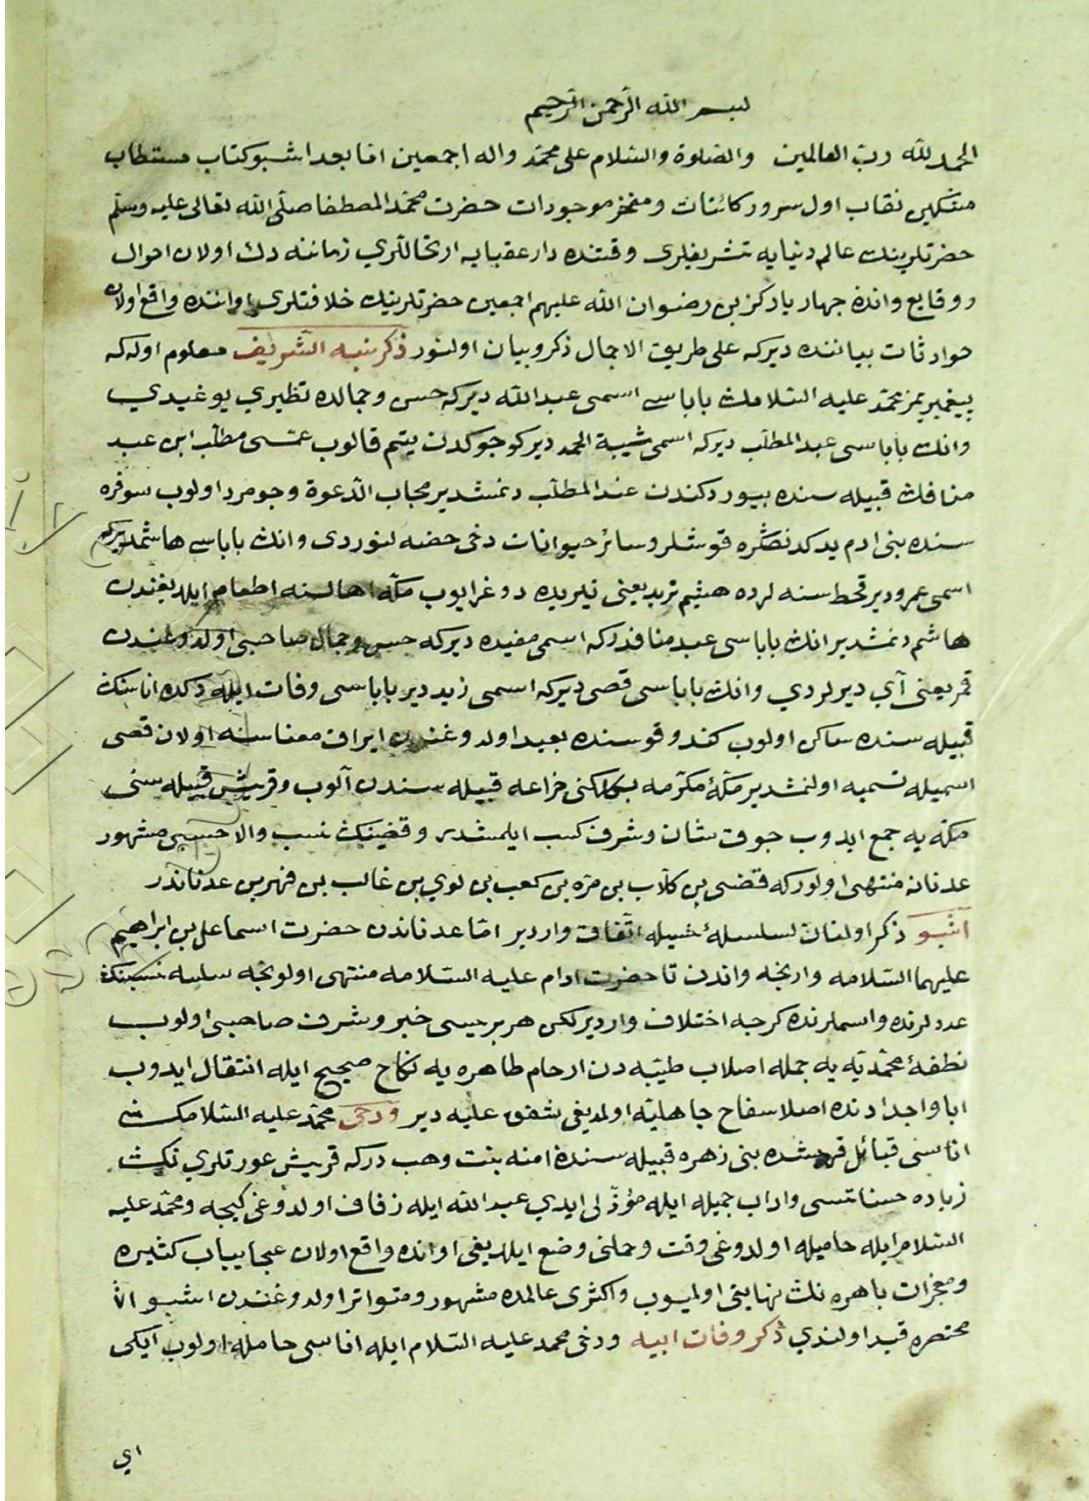 بسم الله الرحمن الرحيم
الحمد لله رب العالمين والصلوة والسلام على محمد واله اجمعين اما بعد اشبو كتاب مستطاب
مشكين نقاب اول سرور كائنات ومفخر موجودات حضرت محمد المصطفا صلى الله تعالى عليه وسلم
حضرتلرينك عالم دنيايه تشريفلرى وقتنده دار عقبايه ارتحاللري زماننه دك اولان احوال
ووقايع وانده جهار يار كزين رضوان الله عليهم اجمعين حضرتلرينك خلافتلرى اواننده واقع اولان
حوادثات بياننده ديركه على طريق الاجمال ذكر وبيان اولنور ذكر نسبه الشريف معلوم اوله كه
پيغمبريمز محمد عليه السلامك باباسى اسمى عبد الله ديركه حسن وجمالده نظيري يوغيدي
وانك باباسى عبد المطلب ديركه اسمى شيبة الحمد دير كوجوكدن يتيم قالوب عمسى مطلب ابن عبد
منافك قبيله سنده بيوردكندن عبد المطلب دنمشدير مجاب الدعوة وجومرد اولوب سوفره
سنده بنى ادم يدكدنصكره قوشلر وسائر حيوانات دخى حصه لنوردى وانك باباسى هاشمديركه
اسمى عمرو دير قحط سنه لرده هشيم ثريد يعنى تيريده دوغرايوب مكه اهالسنه اطعام ايلديغندن
هاشم دنمشدير انك باباسى عبد منافدركه اسمى مغيره ديركه حسن وجمال صاحبى اولدوغندن
قمر يعنى آي ديرلردي وانك باباسى قصى ديركه اسمى زيد دير باباسى وفات ايلدكده اناسنك
قبيله سنده ساكن اولوب كندو قومنده بعيد اولدوغندن ايراق معناسنه اولان قصى
اسميله تسميه اولنمشدير مكۀ مكرمه بكلكنى خزاعه قبيله سندن آلوب وقريش قبيله سنى
مكه يه جمع ايدوب جوق شان وشرف كسب ايلمشدر وقصينك نسب والاحسبى مشهور
عدنانه منتهى اولوركه قصى بن كلاب بن مره بن كعب بن لوي بن غالب بن فهر بن عدناندر
اشبو ذكر اولنان سلسلۀ اتفاق واردير اما عدناندن حضرت اسماعل بن ابراهيم
عليهما السلامه وارنجه واندن تا حضرت ادام عليه السلامه منتهى اولونجه سلسه نسبنك
عددلرنده واسملرنده كرجه اختلاف واردير لكن هر بريسى خير وشرف صاحبى اولوب
نطفۀ محمديه يه جمله اصلاب طيبه دن ارحام طاهره يه نكاح صحيح ايله انتقال ايدوب
ابا واجدادنده اصلا سفاح جاهليه اولمديغى متفق عليه دير ودخى محمد عليه السلامك
اناسى قبائل قريشده بنى زهره قبيله سنده امنه بنت وهب دركه قريش عورتلري نك
زياده حسناسى واداب جميله ايله ايدي عبد الله ايله زفاف اولدوغى كيجه ومحمد عليه
السلام ايله حاميله اولدوغى وقت وحملنى وضع ايلديغى اوانده واقع اولان عجايبات كثيره
ومعجزات باهره نك نهايتى اولميوب واكثرى عالمده مشهور ومتواتر اولدوغندن اشبو
محتصره قيد اولندي ذكر وفات ابيه ودخى محمد عليه السلام ايله اناسى حامله اولوب ايكى
اي